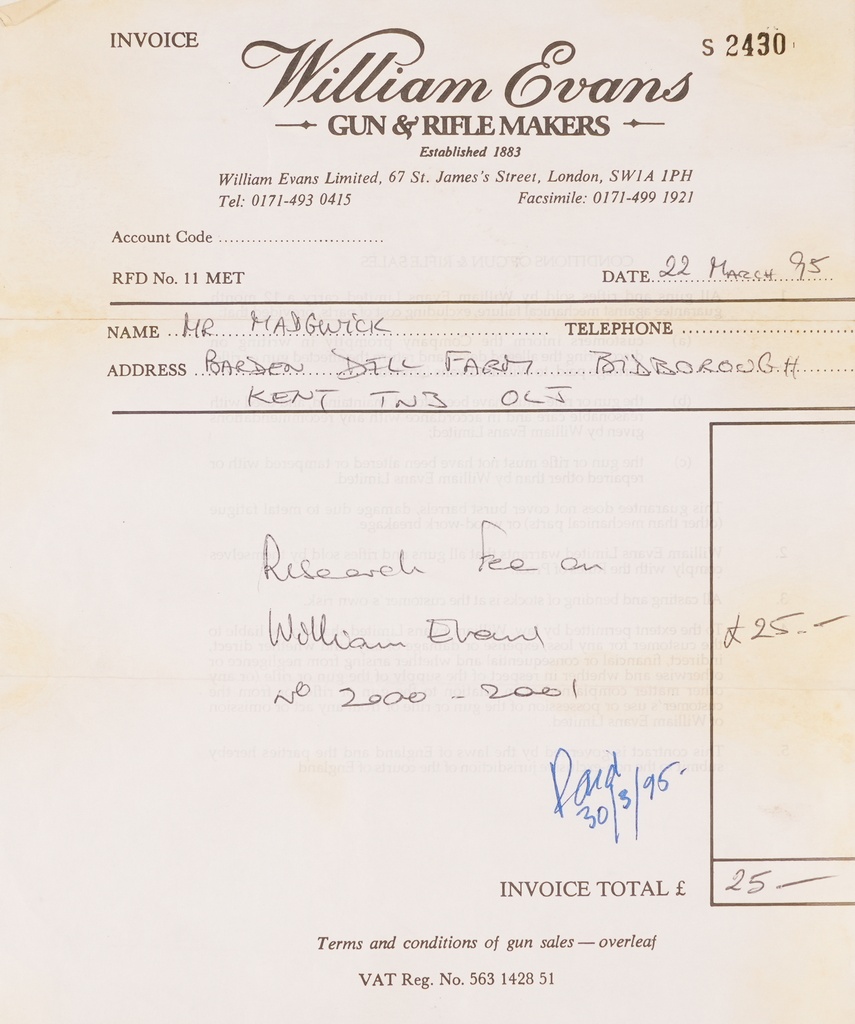 INVOICE
S 2430
William Evans
GUN & RIFLE MAKERS
Established 1883
William Evans Limited, 67 St. James's Street, London, SW1A 1PH
Tel: 0171-493 0415 Facsimile: 0171-499 1921
Account Code ..............................
RFD No. 11 MET DATE 22 MARCH 95
NAME MR MADGWICK TELEPHONE
ADDRESS BARDEN FARM BIDBOROUGH
KENT TN3 OLJ
Research Fee on
William Evans £25.—
No 2000 - 2001
Paid
30/3/95.
INVOICE TOTAL £ 25 —
Terms and conditions of gun sales — overleaf
VAT Reg. No. 563 1428 51